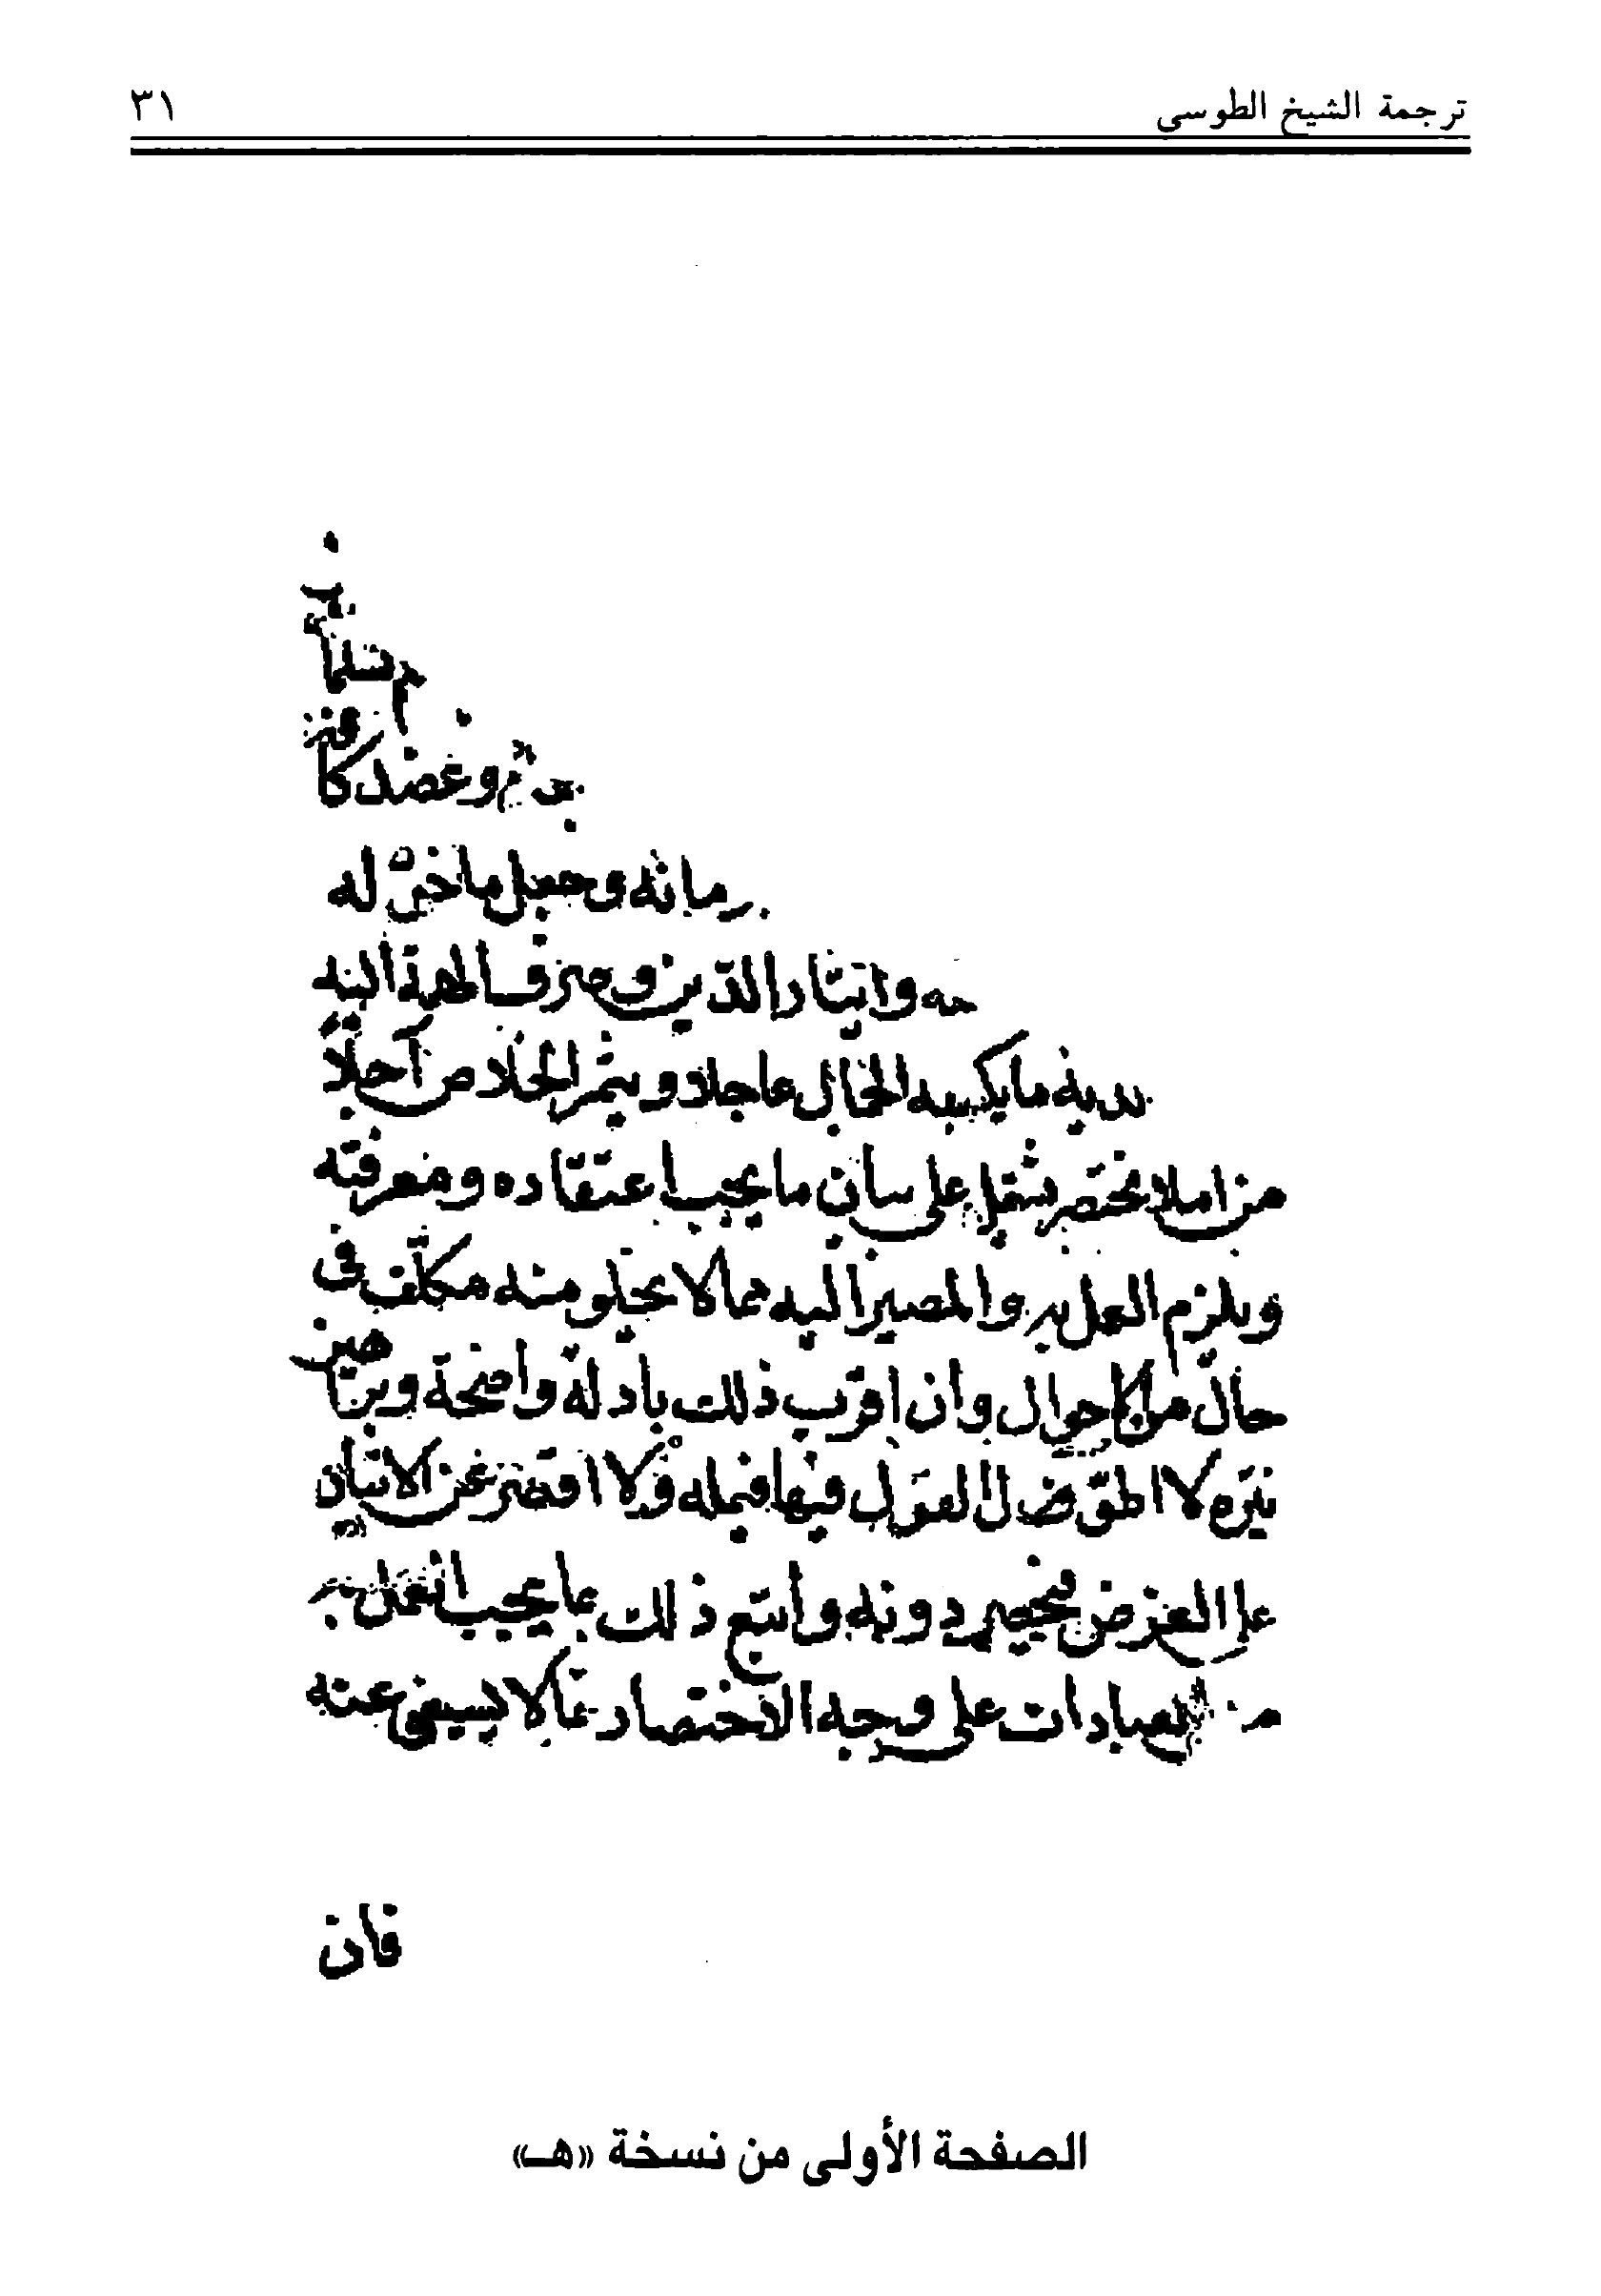 ترجمة الشيخ الطوسي
٣١
وعضد كا
رمانه وجعل ما خو له
حه وايثار الدين وصرف اليه
ما يكسبه الجمال عاجلا ويثمر الخلاص آجلا
من املاء مختصر يشتمل على بيان ما يجب اعتقاده ومعرفته
ويلزم العمل به والمصير اليه مما لا يخلو منه مكلف فى
حال من الاحوال وان اقرب ذلك بادلة واضحة وبراهين
نيره لا اطول القول فيها فيمله ولا اقصر عن الاتيان
على الغرض فيحصر دونه واتبع ذلك بما يجب العمل به
من العبادات على وجه الاختصار مما لا يستغنى عنه
فان
الصفحة الأولى من نسخة «هـ»